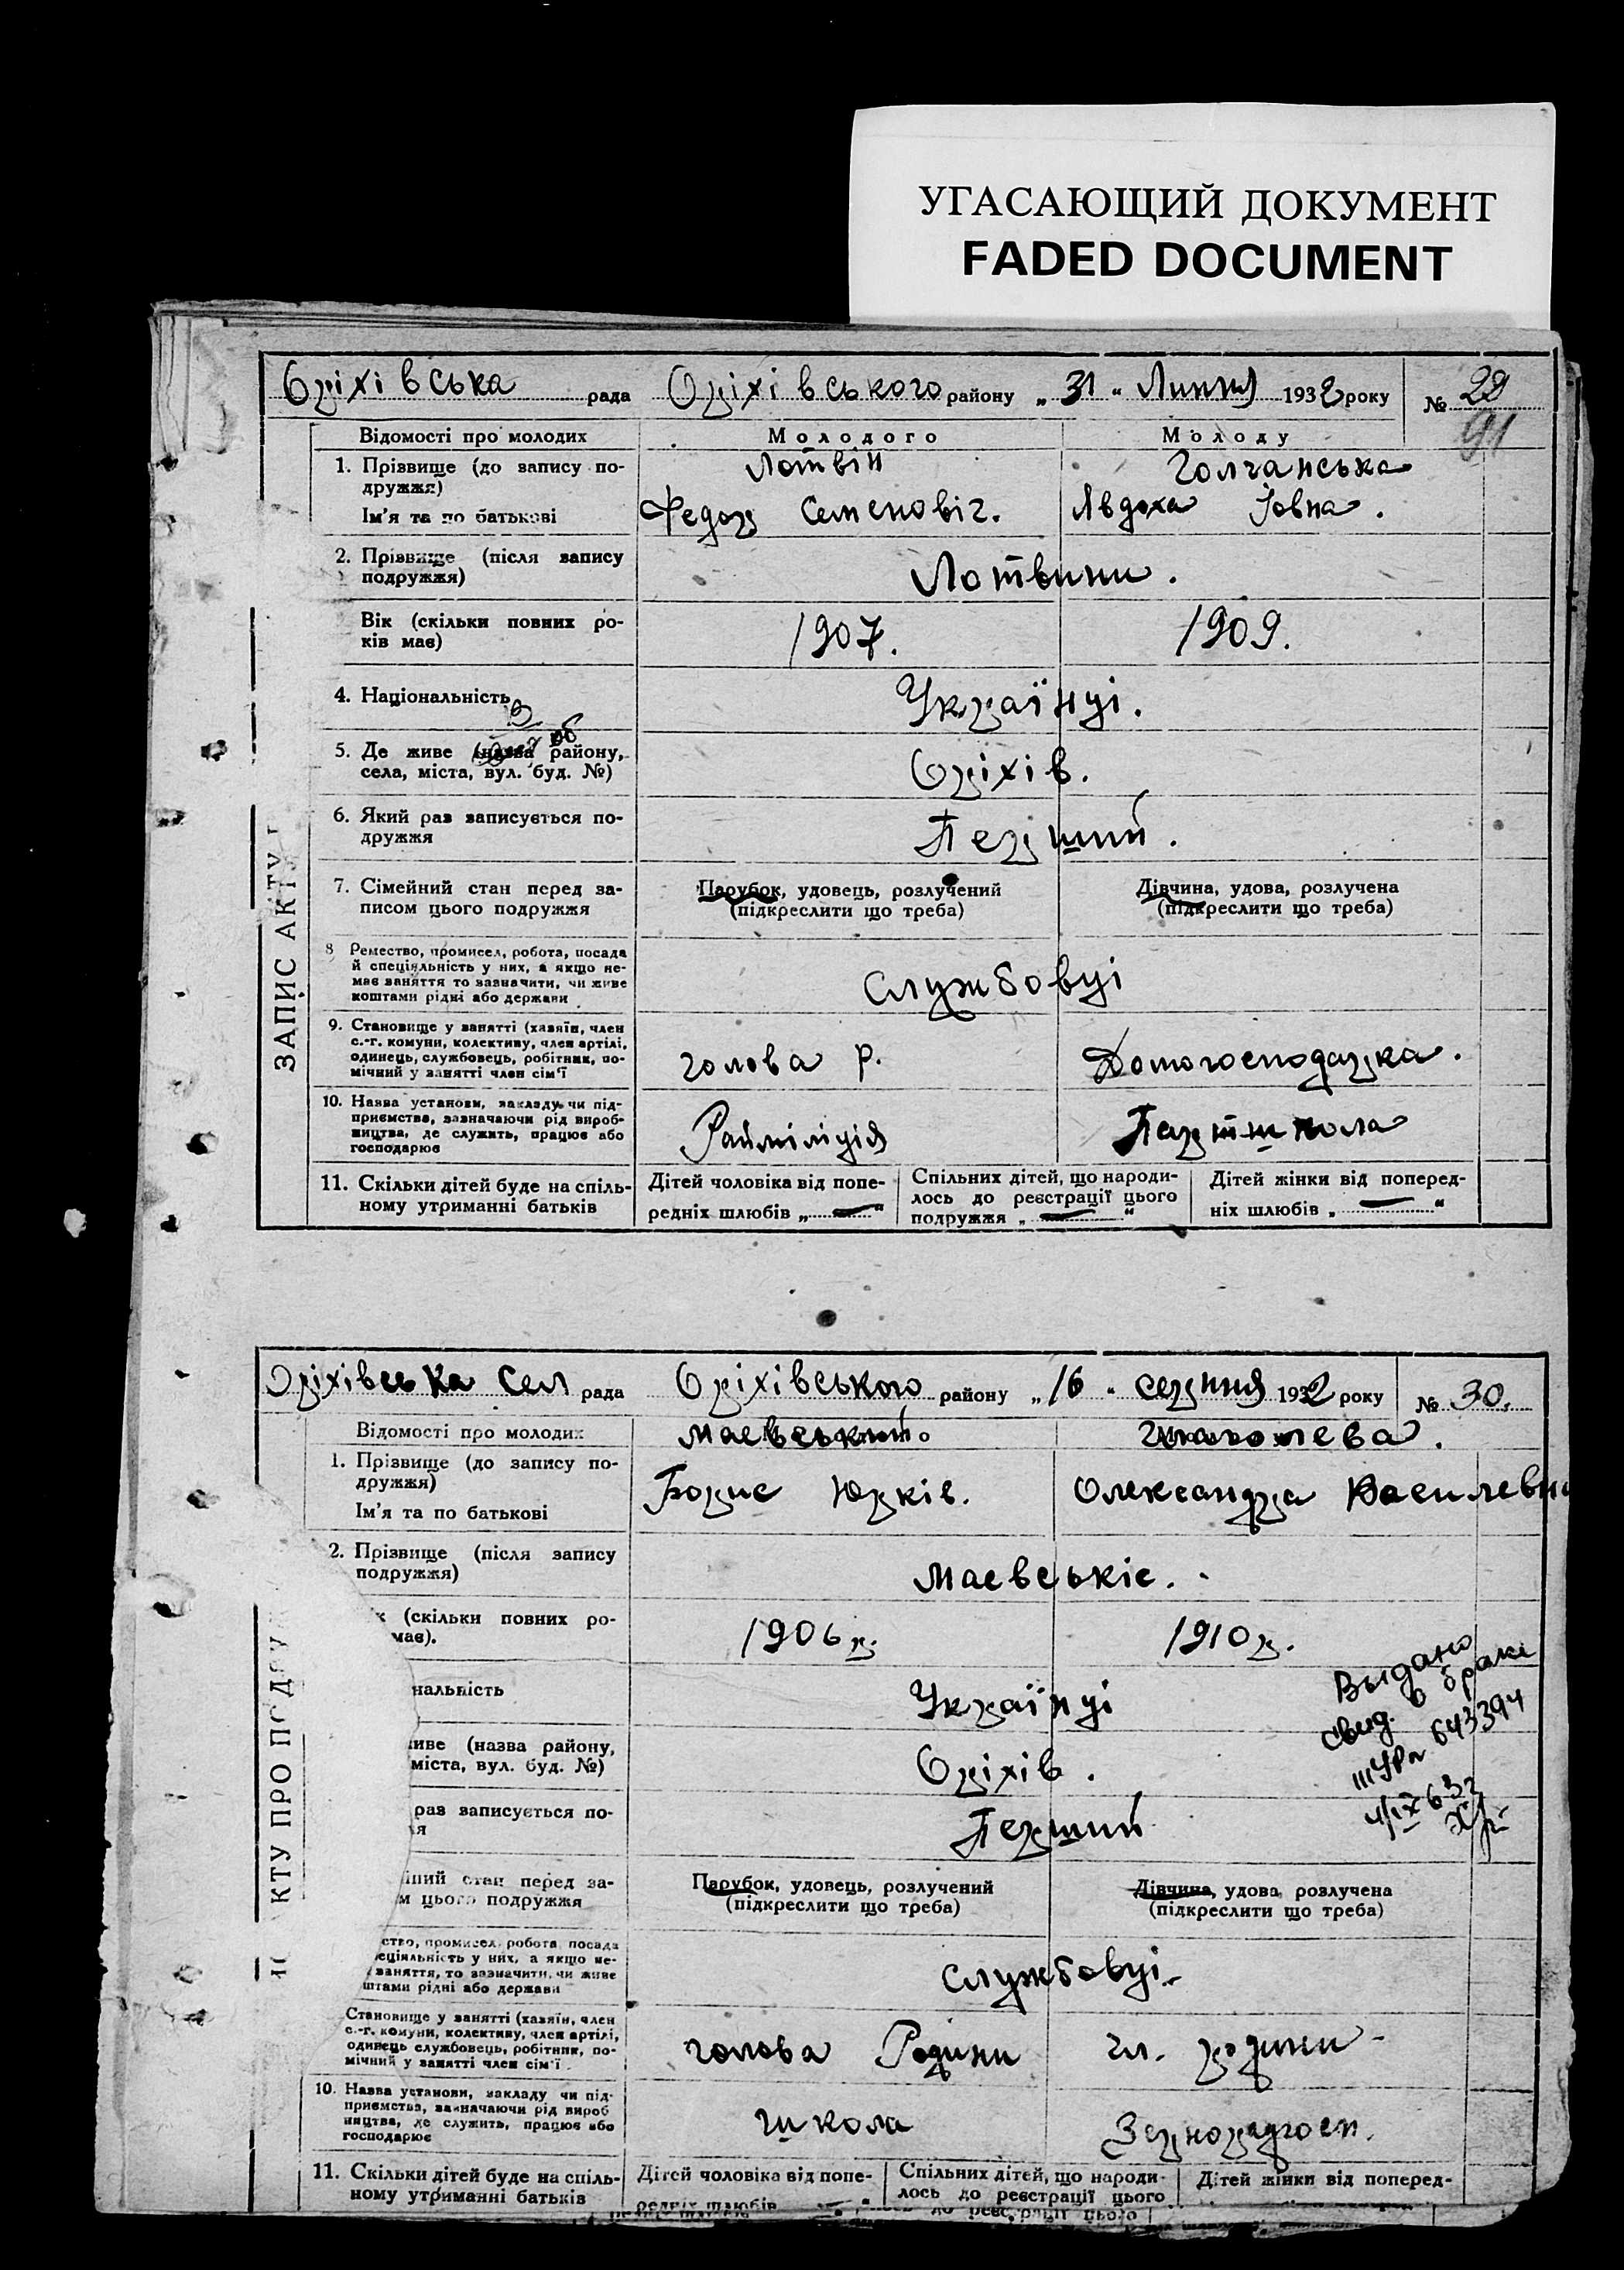 УГАСАЮЩИЙ ДОКУМЕНТ
FADED DOCUMENT
Оріхівська рада Оріхівського району „ 31 “ Липня 1932 року № 29
91
Відомості про молодих Молодого Молоду
1. Прізвище (до запису подружжя) Лотвін Голчанська
Ім'я та по батькові Федор Семеновіч. Явдоха Іовна.
2. Прізвище (після запису подружжя) Лотвини.
Вік (скільки повних років має) 1907. 1909.
4. Національність Українці.
5. Де живе (назва району, села, міста, вул. буд. №) Оріхів.
6. Який раз записується подружжя Перший.
7. Сімейний стан перед записом цього подружжя Парубок, удовець, розлучений (підкреслити що треба) Дівчина, удова, розлучена (підкреслити що треба)
8 Ремество, промисел, робота, посада й спеціяльність у них, а якщо немає заняття то зазначити, чи живе коштами рідні або держави Службовці
9. Становище у занятті (хазяїн, член с.-г. комуни, колективу, член артілі, одинець, службовець, робітник, помічний у занятті член сім'ї голова р. Домогосподарка.
10. Назва установи, закладу чи підприємства, зазначаючи рід виробництва, де служить, працює або господарює Райміліція Партшкола
11. Скільки дітей буде на спільному утриманні батьків Дітей чоловіка від попередніх шлюбів „ — “ Спільних дітей, що народилось до реєстрації цього подружжя „ — “ Дітей жінки від попередніх шлюбів „ — “
ЗАПИС АКТУ
Оріхівська Сел рада Оріхівського району „ 16 “ серпня 1932 року № 30.
Відомості про молодих Маевський
1. Прізвище (до запису подружжя)
Ім'я та по батькові Борис Юрків. Олександра Василевна
2. Прізвище (після запису подружжя) Маевськіе.
к (скільки повних ро- має). 1906 р. 1910 р.
нальність Українці
Выдано
свид. о браке
ІІІ УРа 643394
иве (назва району, міста, вул. буд. №) Оріхів.
раз записується по- я Перший
йний стан перед за- м цього подружжя Парубок, удовець, розлучений (підкреслити що треба) Дівчина, удова, розлучена (підкреслити що треба)
ство, промисел, робота, посада еціяльність у них, а якщо не- заняття, то зазначити, чи живе штами рідні або держави Службовці.
Становище у занятті (хазяїн, член с.-г. комуни, колективу, член артілі, одинець службовець, робітник, помічний у занятті член сім'ї голова Родини чл. родини
10. Назва установи, закладу чи підприємства, зазначаючи рід виробництва, де служить, працює або господарює школа Зернорадгосп.
11. Скільки дітей буде на спільному утриманні батьків Дітей чоловіка від попередніх шлюбів Спільних дітей, що народилось до реєстрації цього Дітей жінки від поперед-
КТУ ПРО ПОДРУ